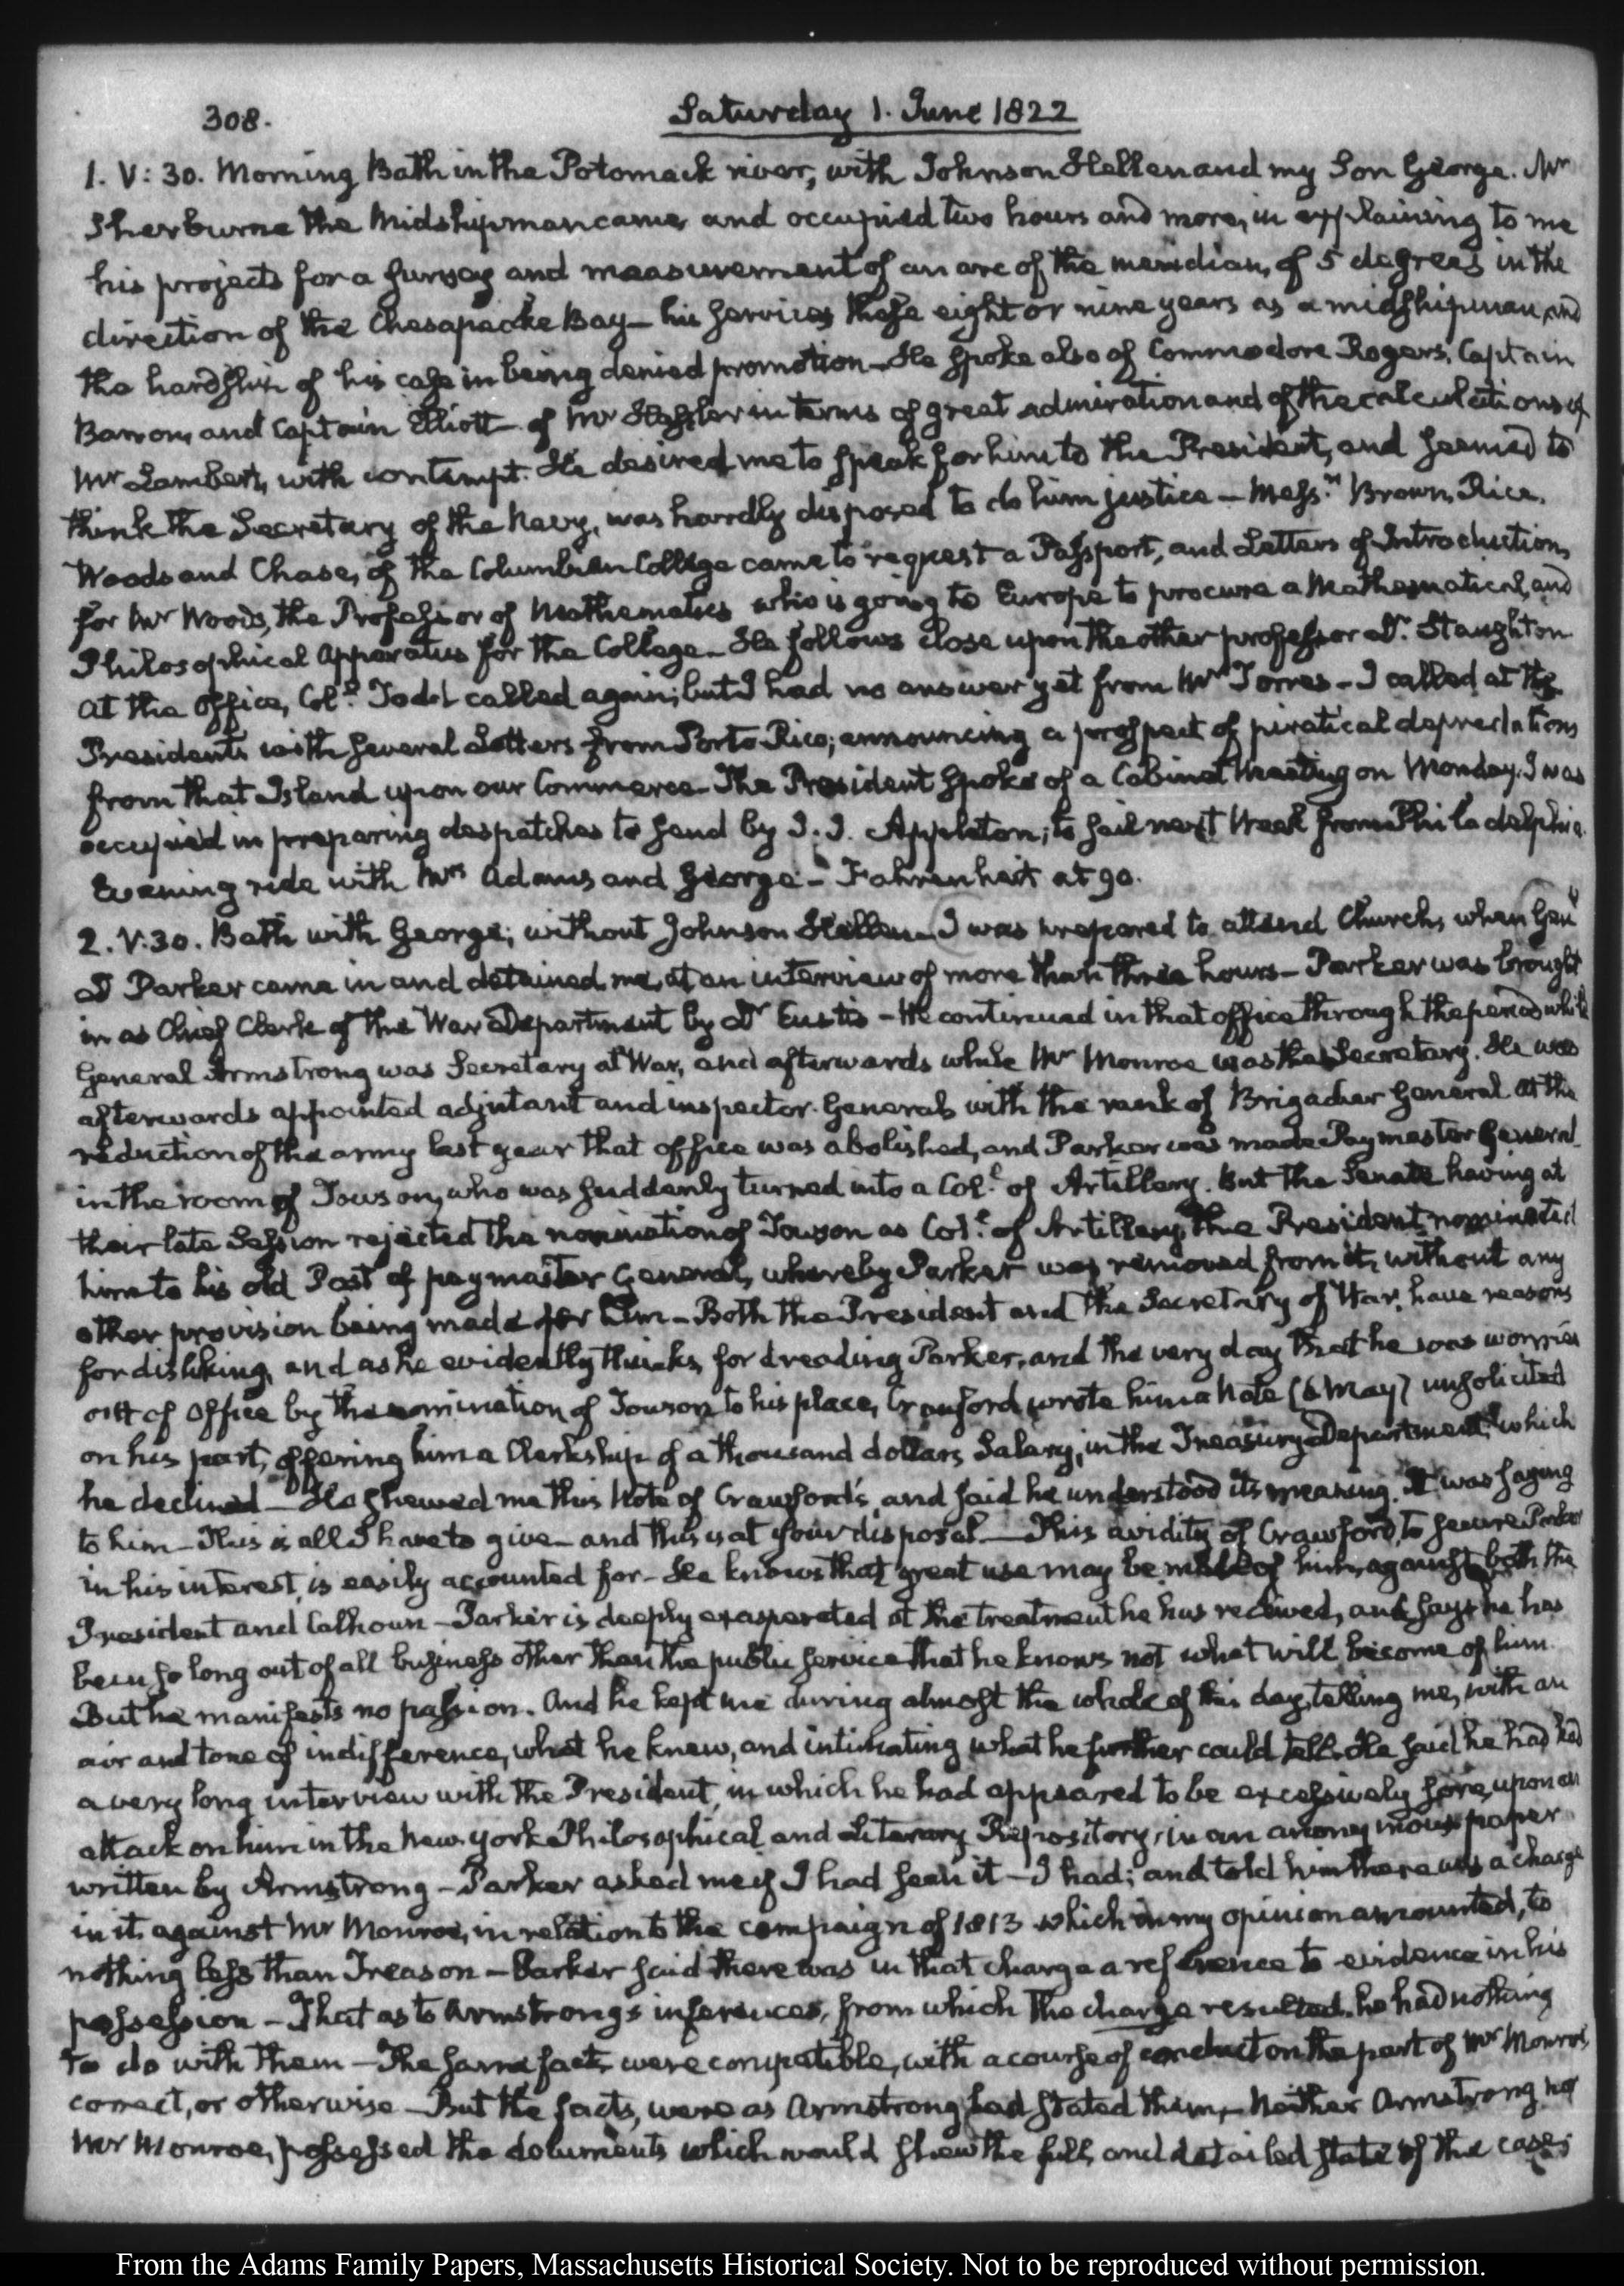 308.
Saturday 1. June 1822
1. V: 30. Morning Bath in the Potomack river, with Johnson Hellen and my Son George. Mr
Sherburne the Midshipman came, and occupied two hours and more, in explaining to me
his projects for a survey and measurement of an arc of the meridian, of 5 degrees in the
direction of the Chesapeake Bay— his services these eight or nine years as a midshipman, and
the hardship of his case in being denied promotion— He spoke also of Commodore Rogers, Captain
Barron, and Captain Elliott— of Mr Hassler in terms of great admiration and of the calculations of
Mr Lambert, with contempt. He desired me to speak for him to the President, and seemed to
think the Secretary of the Navy, was hardly disposed to do him justice— Messrs. Brown, Rice,
Woods and Chase, of the Columbian College came to request a Passport, and Letters of Introduction,
for Mr Woods, the Professor of Mathematics who is going to Europe to procure a Mathematical, and
Philosophical Apparatus for the College— He follows close upon the other professor Dr. Staughton
At the Office, Coll. Todd called again; but I had no answer yet from Mr Torres— I called at the
Presidents with several Letters from Porto-Rico; announcing a prospect of piratical depredations
from that Island upon our Commerce— The President spoke of a Cabinet Meeting on Monday. I was
occupied in preparing despatches to send by J. J. Appleton; to sail next Week from Philadelphia.
Evening ride with Mrs Adams and George— Fahrenheit at 90.
2. V:30. Bath with George; without Johnson Hellen— I was prepared to attend Church, when Genll
D Parker came in and detained me, at an interview of more than three hours— Parker was brought
in as Chief Clerk of the War Department by Dr Eustis— He continued in that office through the period while
General Armstrong was Secretary at War, and afterwards while Mr Monroe was the Secretary. He was
afterwards appointed adjutant and inspector General, with the rank of Brigadier General at the
reduction of the army last year that office was abolished, and Parker was made Paymaster General
in the room of Towson, who was suddenly turned into a Coll. of Artillery. But the Senate having at
their late Session rejected the nomination of Towson as Coll. of Artillery, the President nominated
him to his old Post of paymaster General, whereby Parker was removed from it, without any
other provision being made for him— Both the President and the Secretary of War, have reasons
for disliking, and as he evidently thinks, for dreading Parker, and the very day that he was worried
out of Office by the nomination of Towson to his place, Crawford wrote him a Note (6 May) unsolicited
on his part, offering him a Clerkship of a thousand dollars Salary, in the Treasury Department, which
he declined— He shewed me this Note of Crawford's, and said he understood its meaning. It was saying
to him— This is all I have to give— and this is at your disposal.— This avidity of Crawford, to secure Parker
in his interest, is easily accounted for— He knows that great use may be made of him, against both the
President and Calhoun— Parker is deeply exasperated at the treatment he has received, and says he has
been so long out of all business other than the public service that he knows not what will become of him.
But he manifests no passion. And he kept me during almost the whole of this day, telling me, with an
air and tone of indifference, what he knew, and intimating what he further could tell. He said he had had
a very long interview with the President, in which he had appeared to be excessively sore, upon an
attack on him in the New-York Philosophical and Literary Repository, in an anonymous paper
written by Armstrong— Parker asked me if I had seen it— I had; and told him there was a charge
in it, against Mr Monroe, in relation to the campaign of 1813 which in my opinion amounted, to
nothing less than Treason— Parker said there was in that charge a reference to evidence in his
possession— That as to Armstrongs inferences, from which the charge resulted, he had nothing
to do with them— The same facts were compatible, with a course of conduct on the part of Mr Monroe
correct, or otherwise— But the facts, were as Armstrong had stated them,— Neither Armstrong nor
Mr Monroe, possessed the documents which would shew the full, and detailed state of the case;
From the Adams Family Papers, Massachusetts Historical Society. Not to be reproduced without permission.